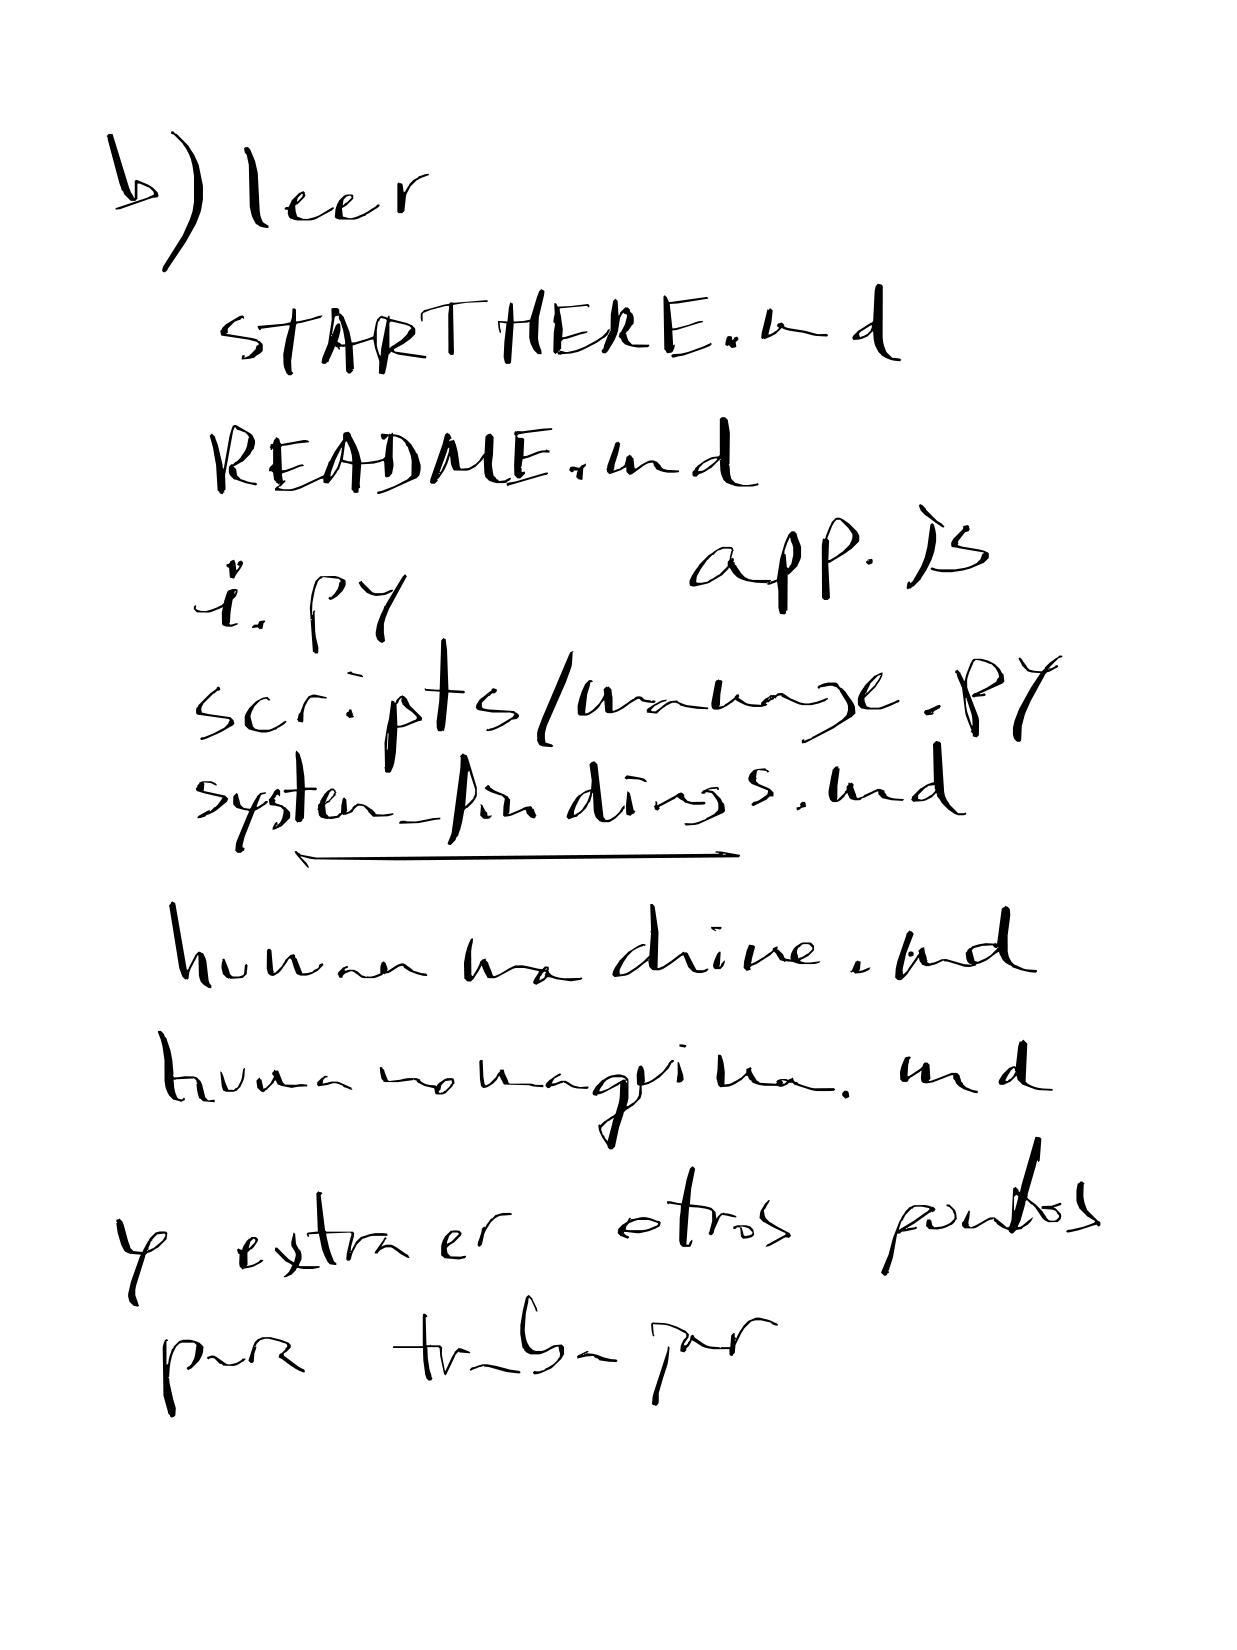 b) leer
STARTHERE.md
README.md
i.py app.js
scripts/manage.py
system_findings.md
humanmachine.md
humanomaquina.md
y extraer otros puntos
para trabajar